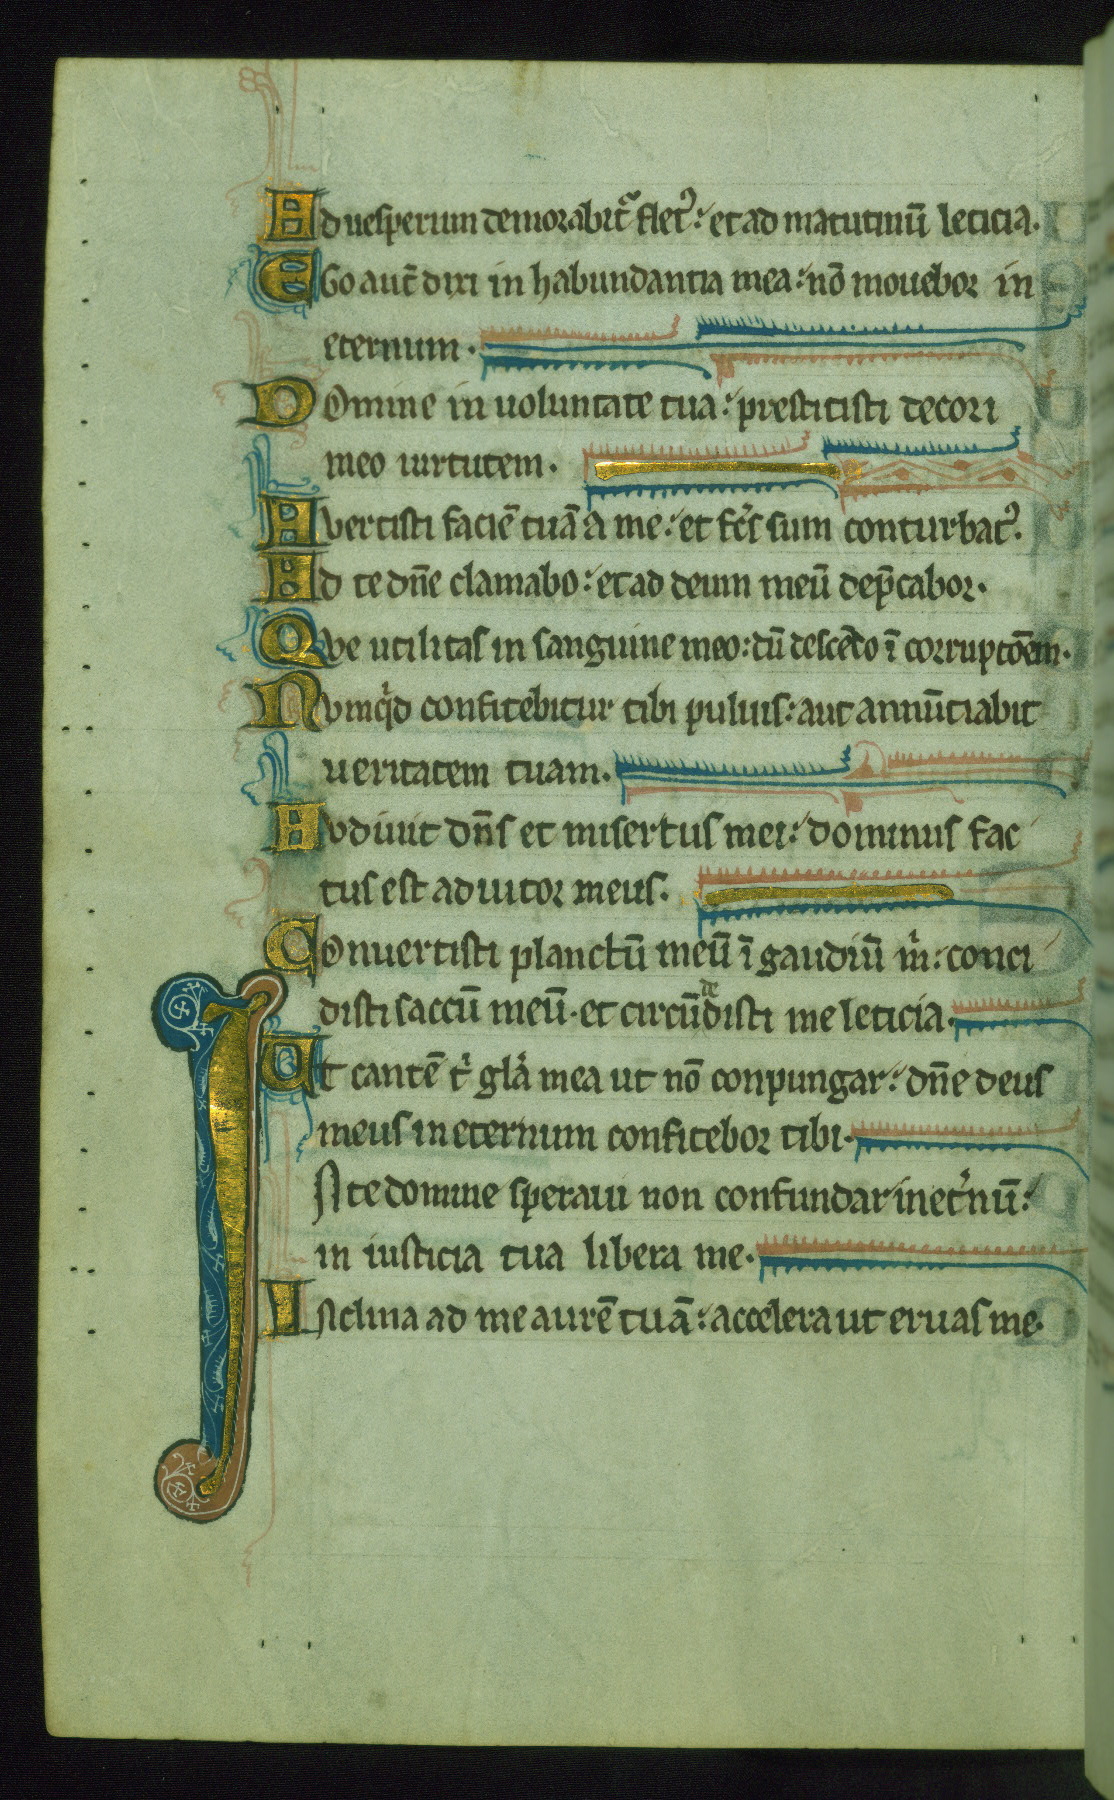 Ad uesperum demorabit᷑ flet᷒: et ad matutinū leticia.
Ego aut̄ dixi in habundantia mea: nō mouebor in
eternum.
Domine in uoluntate tua: prestitisti decori
meo uirtutem.
Auertisti faciē tuā a me: et fc̄s sum conturbat᷒.
Ad te dn̄e clamabo: et ad deum meū dep̄cabor.
Que utilitas in sanguine meo: dū descēdo ī corruptōem.
Numqͥd confitebitur tibi puluis: aut annūtiabit
ueritatem tuam.
Audiuit dn̄s et misertus mei: dominus fac
tus est adiutor meus.
Conuertisti planctū meū ī gaudiū m̄: conci
disti saccū meū. et circūdedisti me leticia.
Ut cantē tͥ gl̄a mea ut nō conpungar: dn̄e deus
meus in eternum confitebor tibi.
IN te domine speraui non confundar in et̄nū:
in iusticia tua libera me.
INclina ad me aurē tuā: accelera ut eruas me.